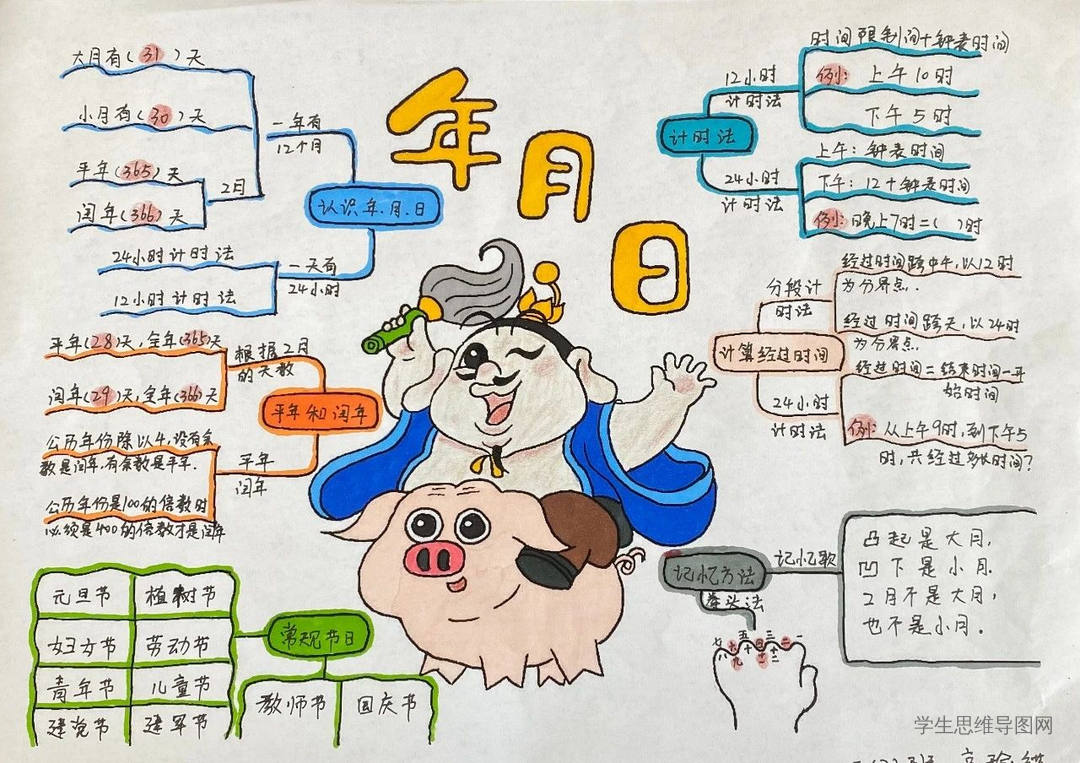 年月日
认识年.月.日
一年有
12个月
大月有(31)天
小月有(30)天
2月
平年(365)天
闰年(366)天
一天有
24小时
24小时计时法
12小时计时法
平年和闰年
根据2月
的天数
平年(28)天,全年(365)天
闰年(29)天,全年(366)天
平年
闰年
公历年份除以4,没有余
数是闰年.有余数是平年.
公历年份是100的倍数时
必须是400的倍数才是闰年
常规节日
元旦节
植树节
妇女节
劳动节
青年节
儿童节
建党节
建军节
教师节
国庆节
计时法
12小时
计时法
时间限制间+钟表时间
例: 上午10时
下午5时
24小时
计时法
上午: 钟表时间
下午: 12+钟表时间
例: 晚上7时=( )时
计算经过时间
分段计
时法
经过时间跨中午,以12时
为分界点..
经过时间跨天,以24时
为分界点.
24小时
计时法
经过时间=结束时间-开
始时间
例: 从上午9时,到下午5
时,共经过多长时间?
记忆方法
记忆歌
凸起是大月,
凹下是小月.
2月不是大月,
也不是小月.
拳头法
学生思维导图网